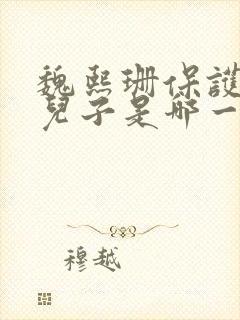 魏熙珊保護
兒子是哪一
穆越